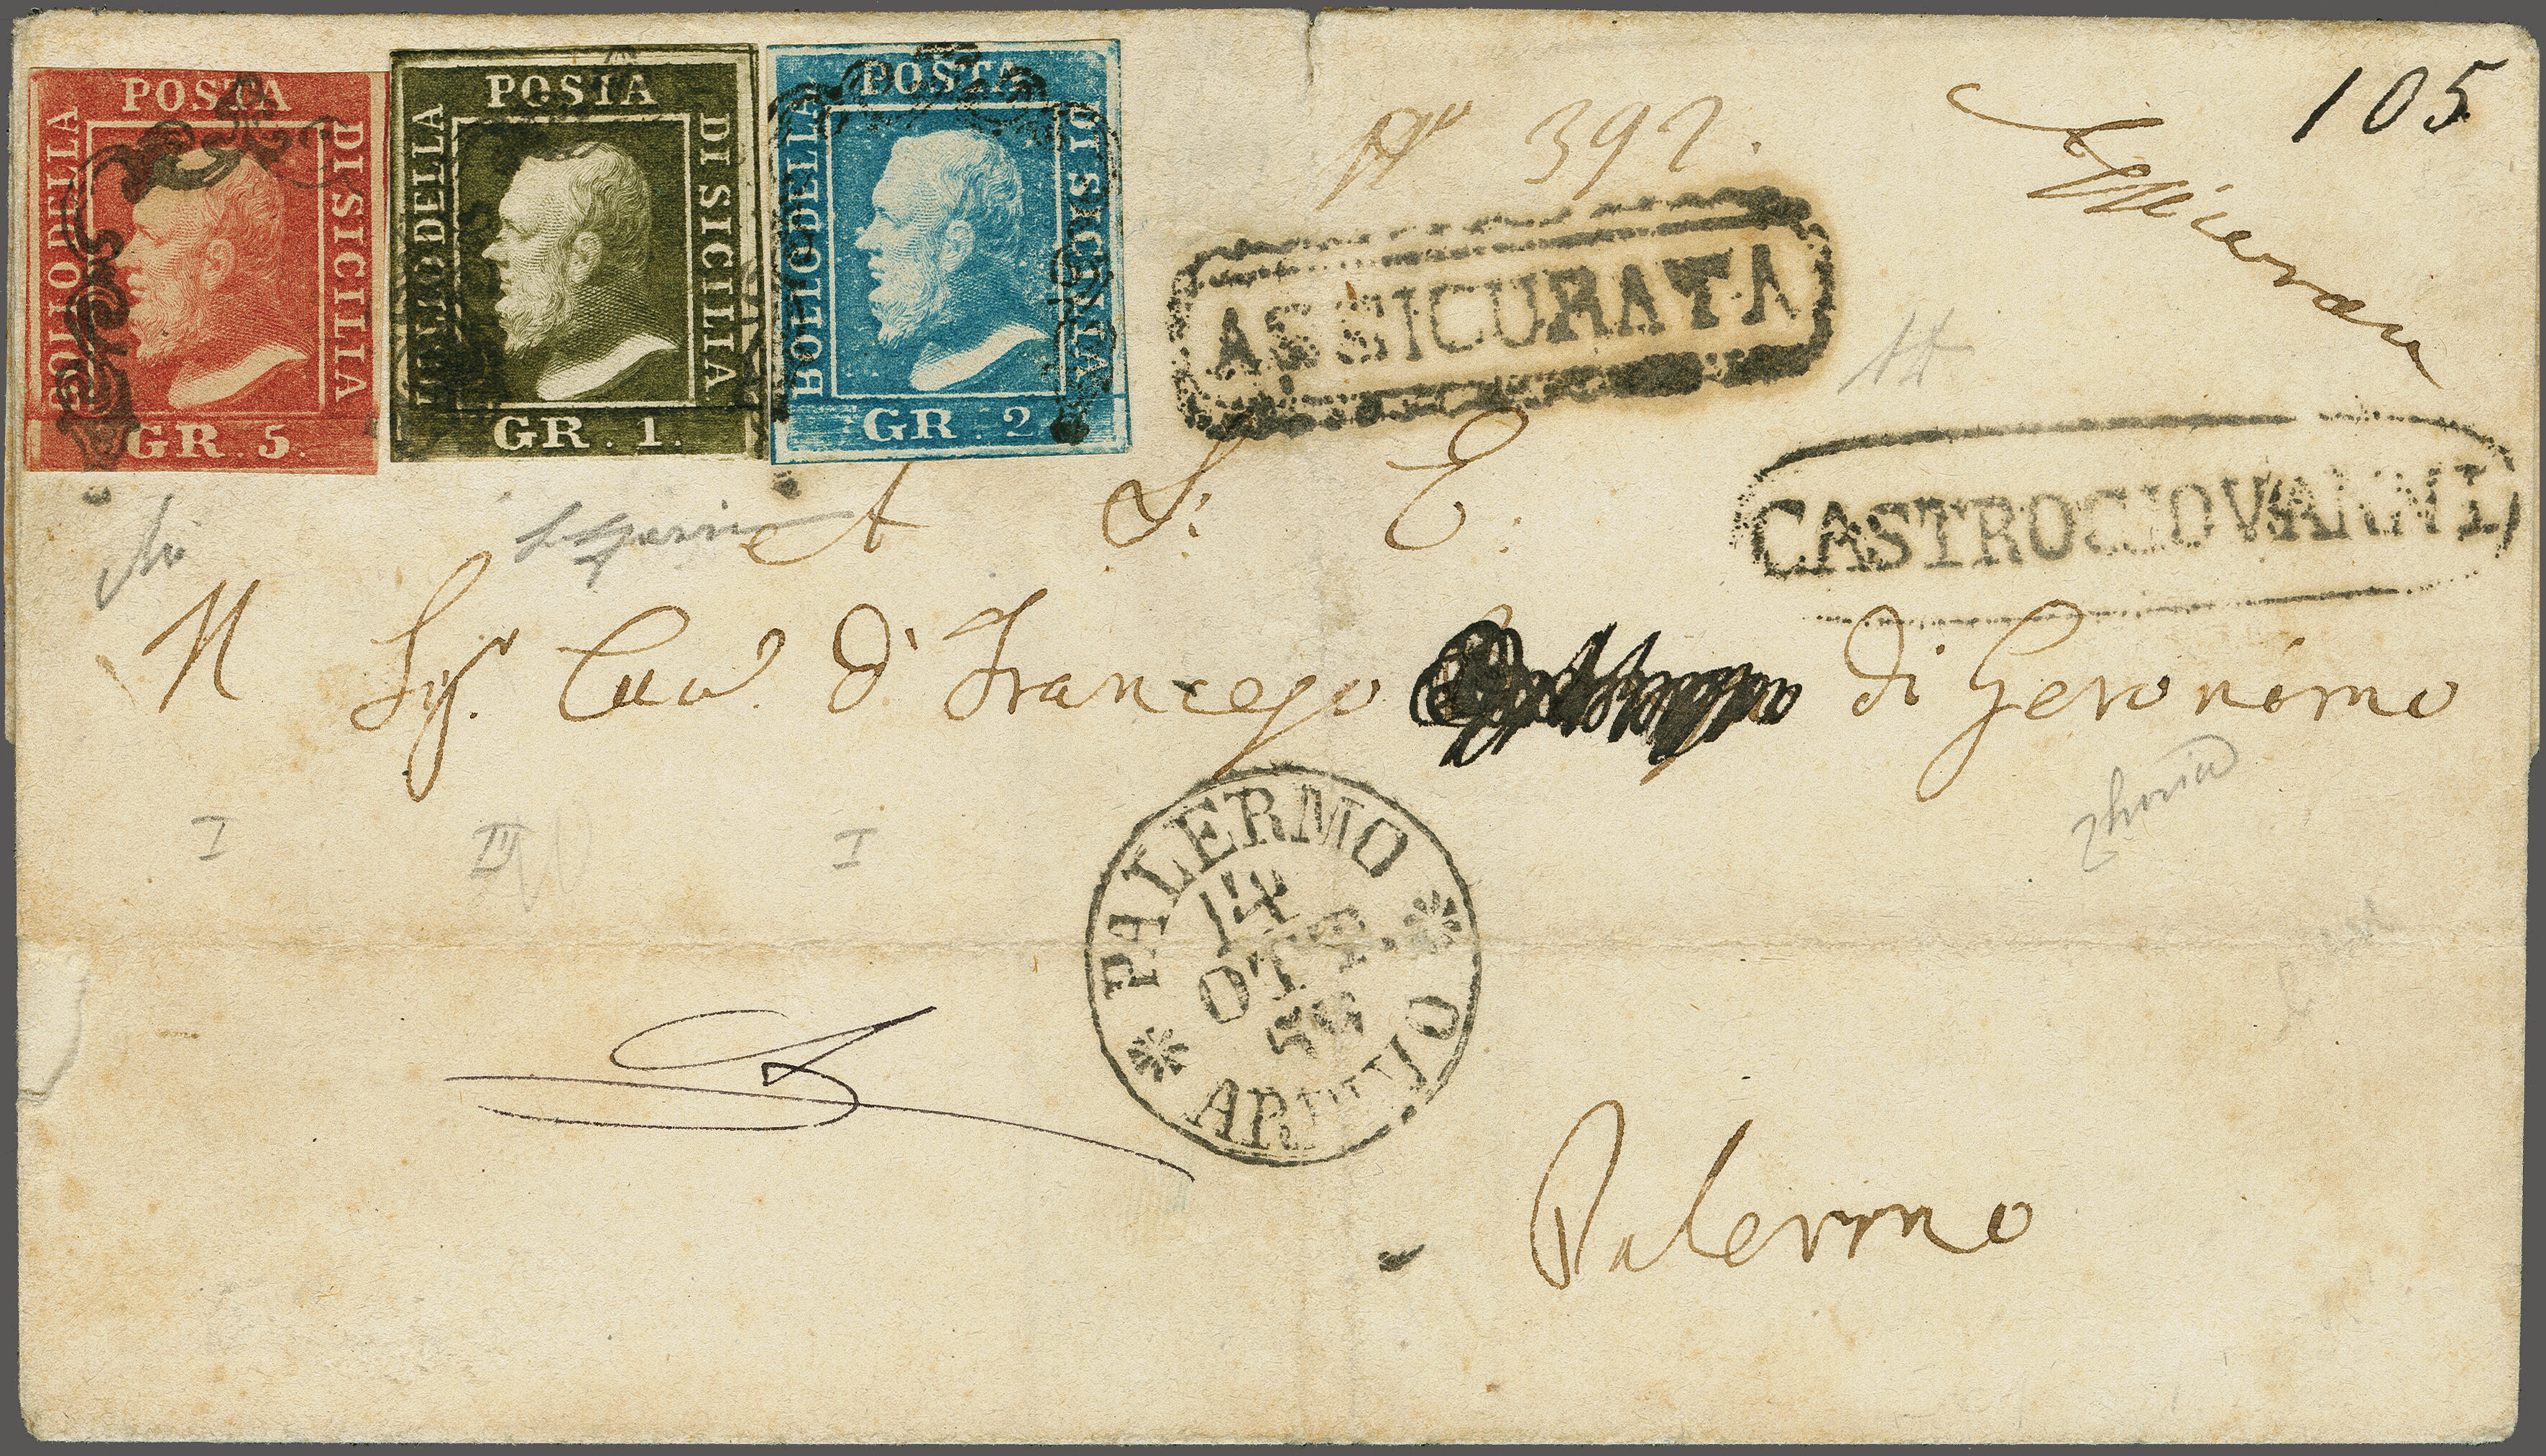 BOLLO DELLA POSTA DI SICILIA
GR. 5.
BOLLO DELLA POSTA DI SICILIA
GR. 1.
BOLLO DELLA POSTA DI SICILIA
GR. 2.
No 392.
105
ASSICURATA
CASTROGIOVANNI
A S. E.
Il Sigr. Cav. Dn Francesco di Geronimo
I
III
I
PALERMO
14
OTTE.
59
ARRIVO
Palermo